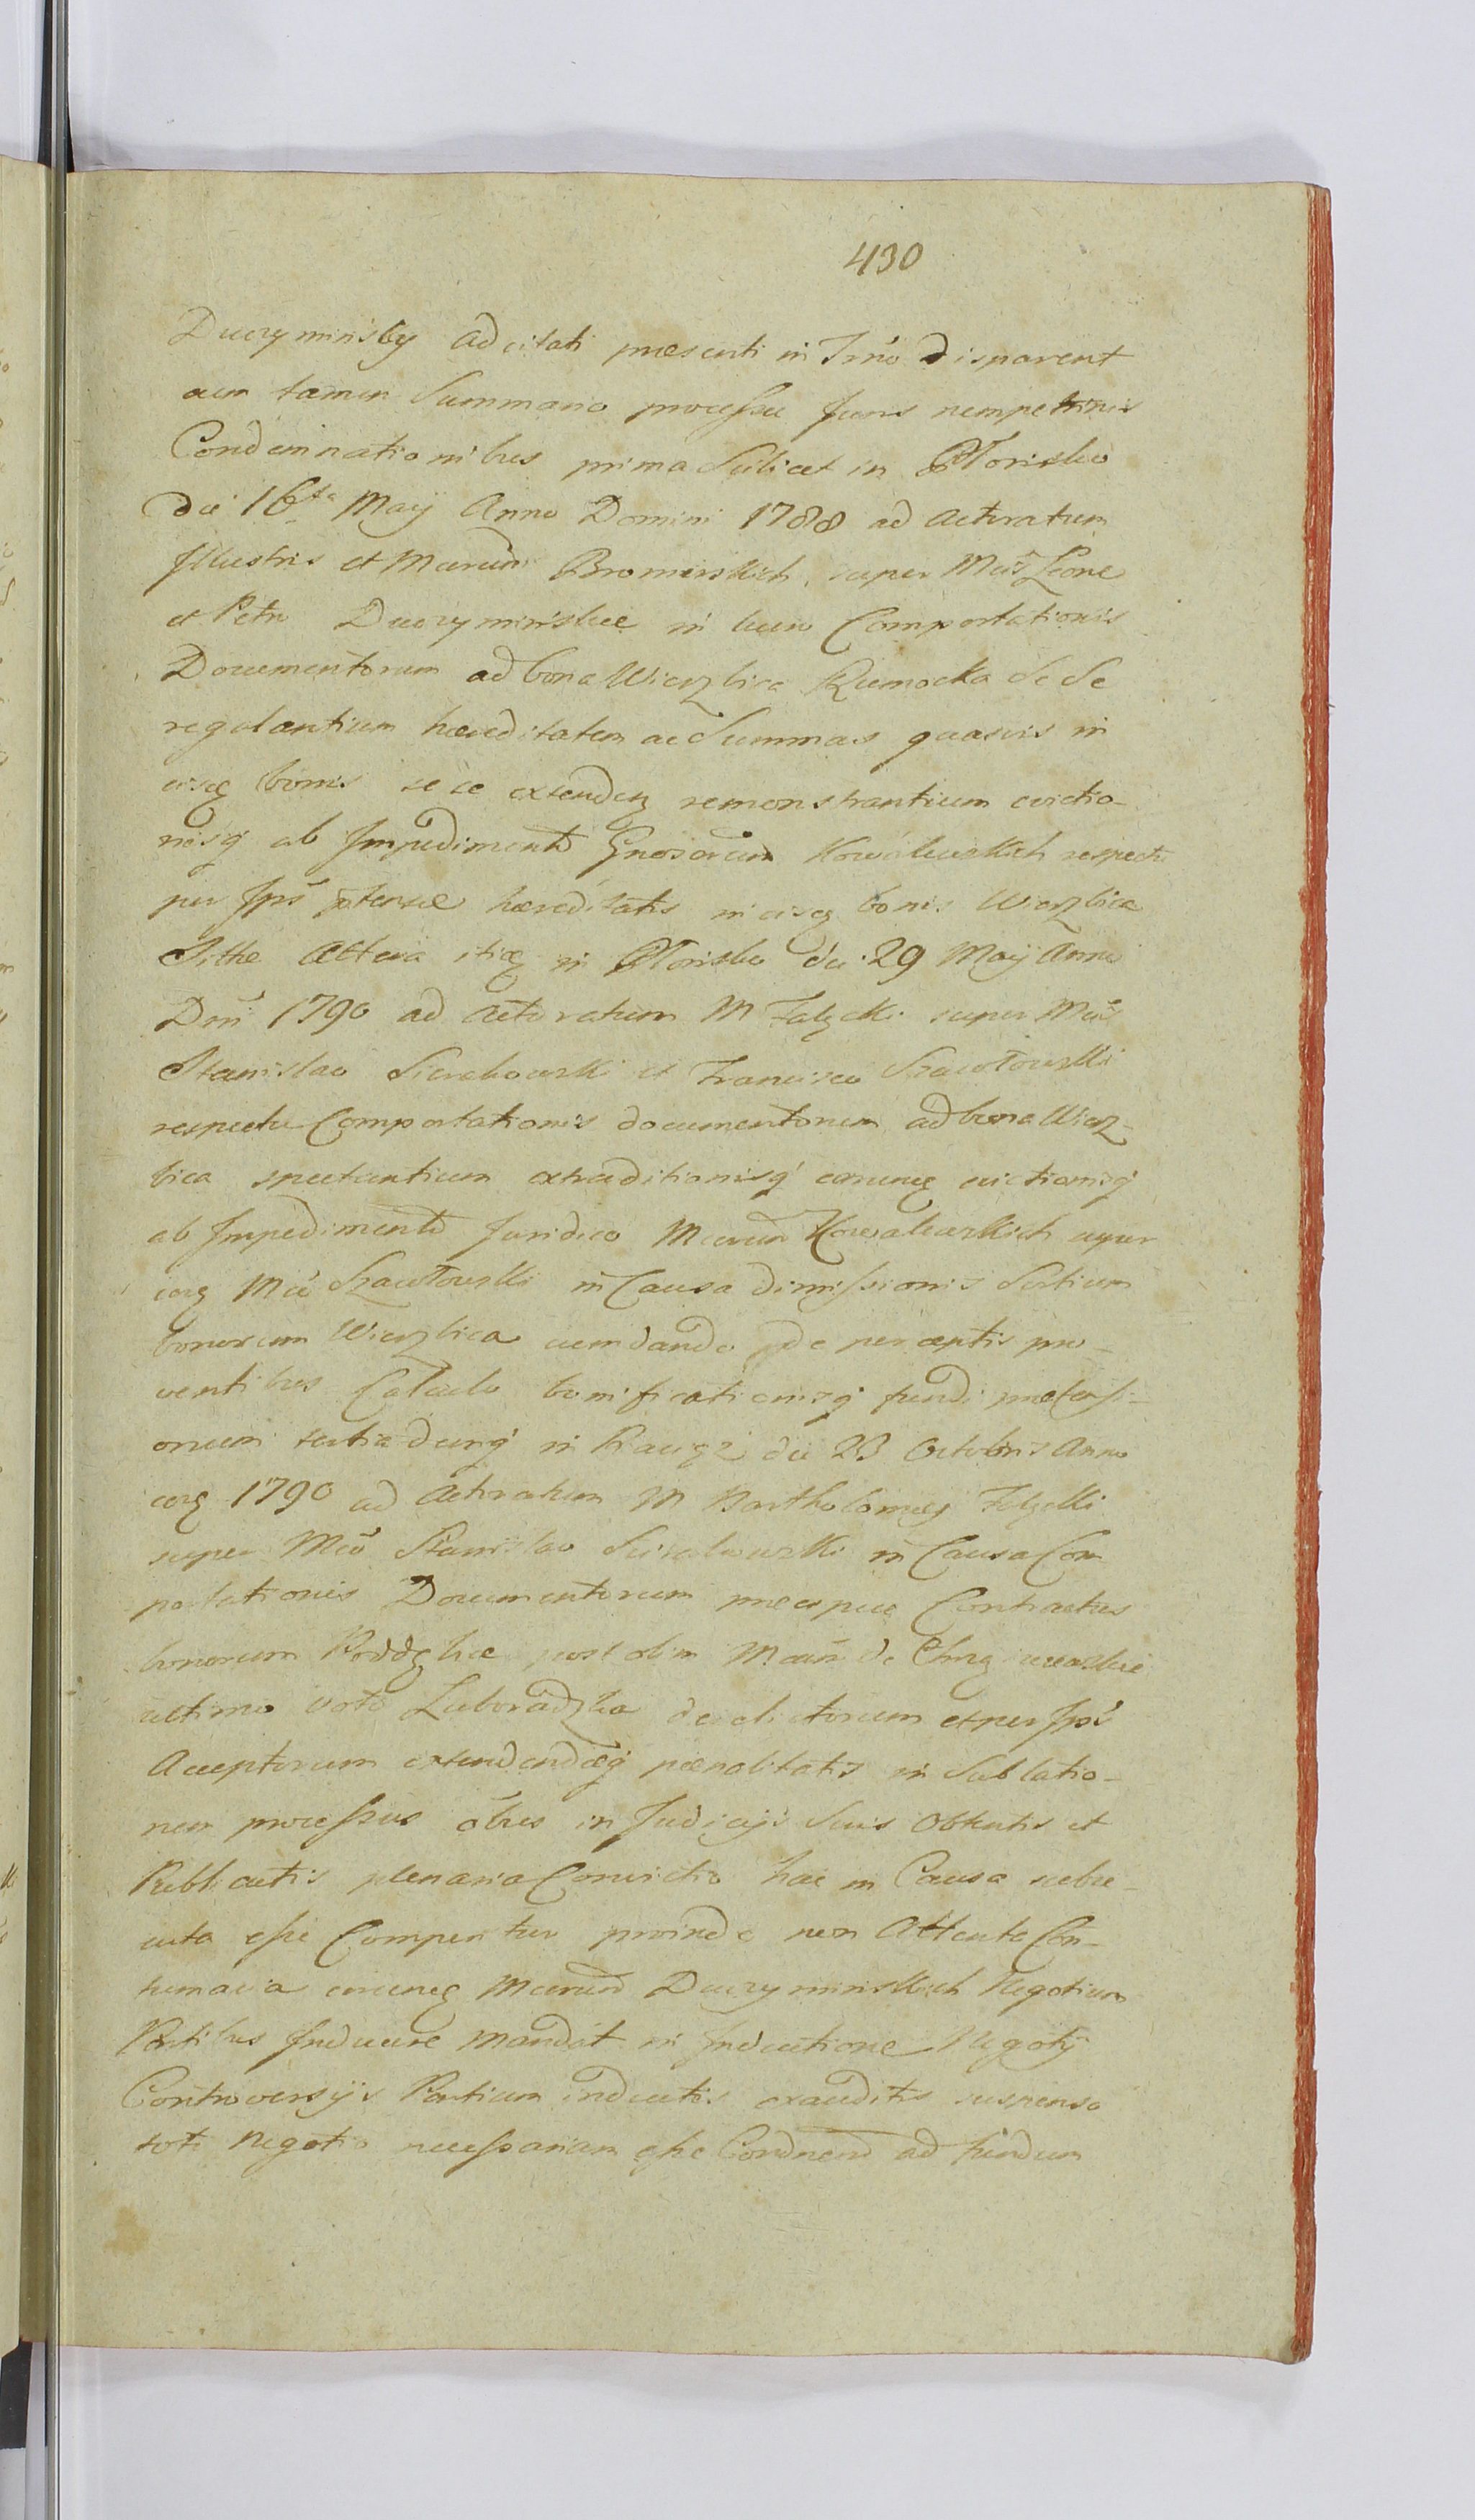 430
Duczyminscy adcitati praesenti in Trno disparent
cum tamen Summario processu Juris nempe trinis
Condemnationibus prima scilicet in
die 16ta Maij Anno Domini 1788 ad Actoratum
Illustris et Mcorum Bromirskich super Mcis Leone
et Petro Duczyminskie in Comportationis
Documentorum ad bona Wierzbica Rumocka se se
regulantium haereditatem ac Summas quasvis in
eisq bonis se se extendeq remonstrantium evictio-
nisq ab Impedimento Gnosorum Kowalewskich respectu
per Ipsos haereditatis in eisq bonis Wierzbica
Sithae Altera itiq in die 29 Maij Anni
Dni 1790 ad Actoratum M Załęcki super Mcis
Stanislao Sierakowski et Francisco Szawłowski
respectu Comportationis documentorum ad bona Wierz-
bica spectantium extraditionisq eorumq evictionisq
ab Impedimento Juridico Mcorum Kowalewskich super
eorg Mco Szawłowski in Causa dimissionis Sortium
bonorum Wierzbica cum dando de perceptis pro-
ventibus Calculo bonificationisq fundi praetensi-
onum tertia demq in die 23 Octobris Anno
eorg 1790 ad Actoratum M Bartholomaej
super Mco Stanislao Sierakowski in Causa Com
portationis Documentorum praecipue Contractus
bonorum post olim
ultimo voto Luboradzka derelictorum et per Ipsos
Acceptorum extendendaeq paenalitatis in Sublatio-
nem processus obus in Judicijs Suis Obtentis et
Publicatis plenaria Convictio hac in Causa subse-
cuta esse Comperitur proinde non Attenta Con-
tumacia eorumq Mcorum Duczyminskich Negotium
Partibus Inducere mandat in Inductione Negotij
Controversijs Partium inductis exauditis suspenso
toto negotio necessariam esse Condnend ad fundum